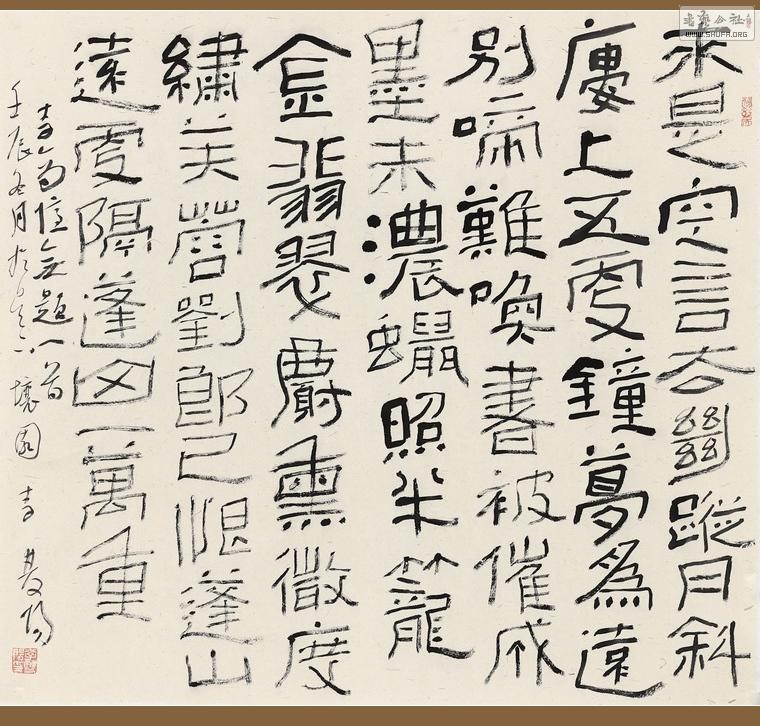 來是空言去絕蹤月斜
廔上五更鐘夢爲遠
別啼難喚書被催成
墨未濃蠟照半籠
金翡翠麝熏微度
繡芙蓉劉郎已恨蓬山
遠更隔蓬山一萬重
李商隱無題一首
壬辰冬月於 壤園 李 陽
書藝公社
WWW.SHUFA.ORG